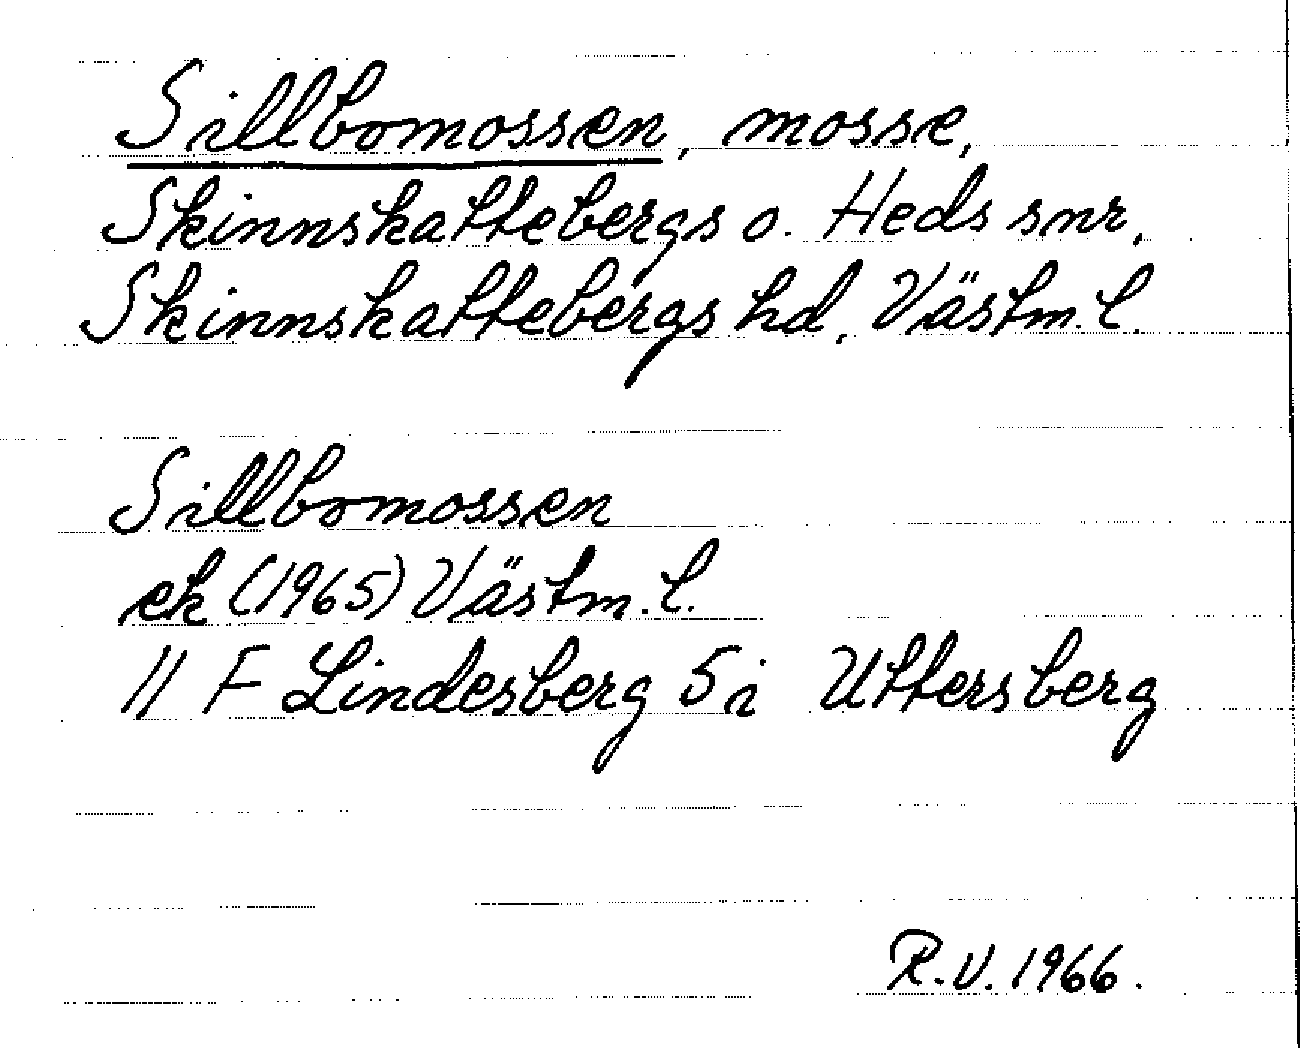 Sillbomossen, mosse,
Skinnskattebergs o. Heds snr,
Skinnskattebergs hd, Västm. l.
Sillbomossen
ek (1965) Västm. l.
11 F Lindesberg 5 i Uttersberg
R.V. 1966.